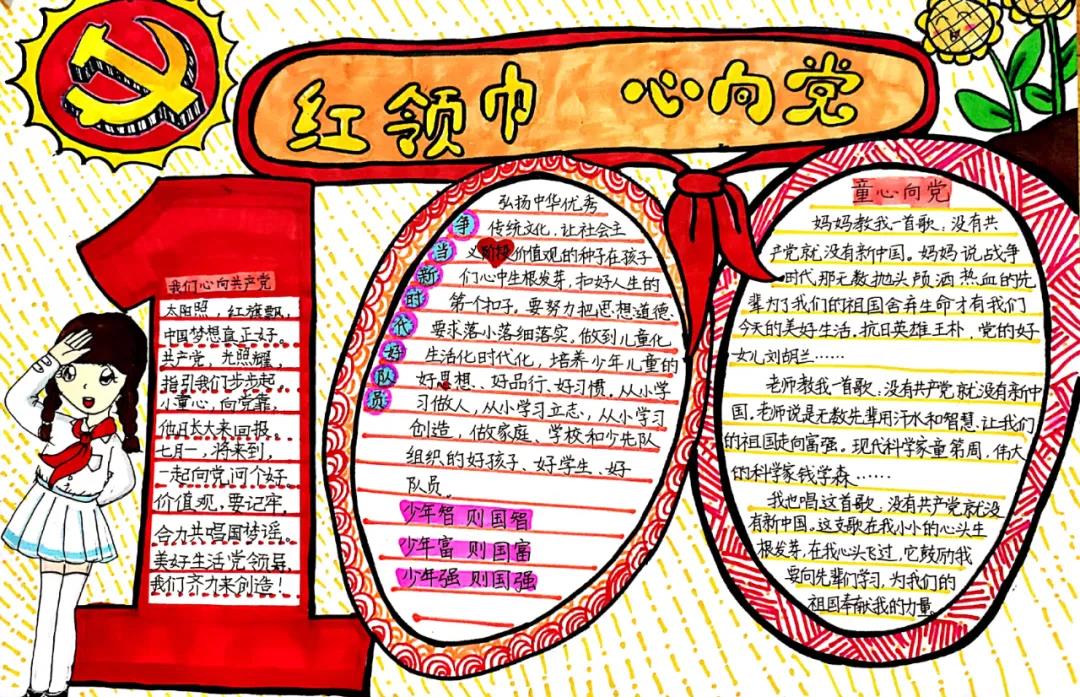 红领巾 心向党
我们心向共产党
太阳照，红旗飘，
中国梦想真正好。
共产党，光照耀，
指引我们步步起。
小童心，向党靠，
他月长大来回报。
七月一，将来到，
一起向党问个好。
价值观，要记牢，
合力共唱国梦谣。
美好生活党领导，
我们齐力来创造！
争当新时代好队员
弘扬中华优秀
传统文化，让社会主
义阶极价值观的种子在孩子
们心中生根发芽，扣好人生的
第一个扣子。要努力把思想道德
要求落小落细落实。做到儿童化
生活化时代化，培养少年儿童的
好思想、好品行、好习惯。从小学
习做人，从小学习立志，从小学习
创造，做家庭、学校和少先队
组织的好孩子、好学生、好
队员。
少年智 则国智
少年富 则国富
少年强 则国强
童心向党
妈妈教我一首歌：没有共
产党就没有新中国。妈妈说战争
时代那无数抛头颅洒热血的先
辈为了我们的祖国舍弃生命才有我们
今天的美好生活。抗日英雄王朴，党的好
女儿刘胡兰……
老师教我一首歌：没有共产党就没有新中
国。老师说是无数先辈用汗水和智慧，让我们
的祖国走向富强。现代科学家童第周，伟大
的科学家钱学森……
我也唱这首歌，没有共产党就没
有新中国。这支歌在我小小的心头生
根发芽，在我心头飞过，它鼓励我
要向先辈们学习，为我们的
祖国奉献我的力量。